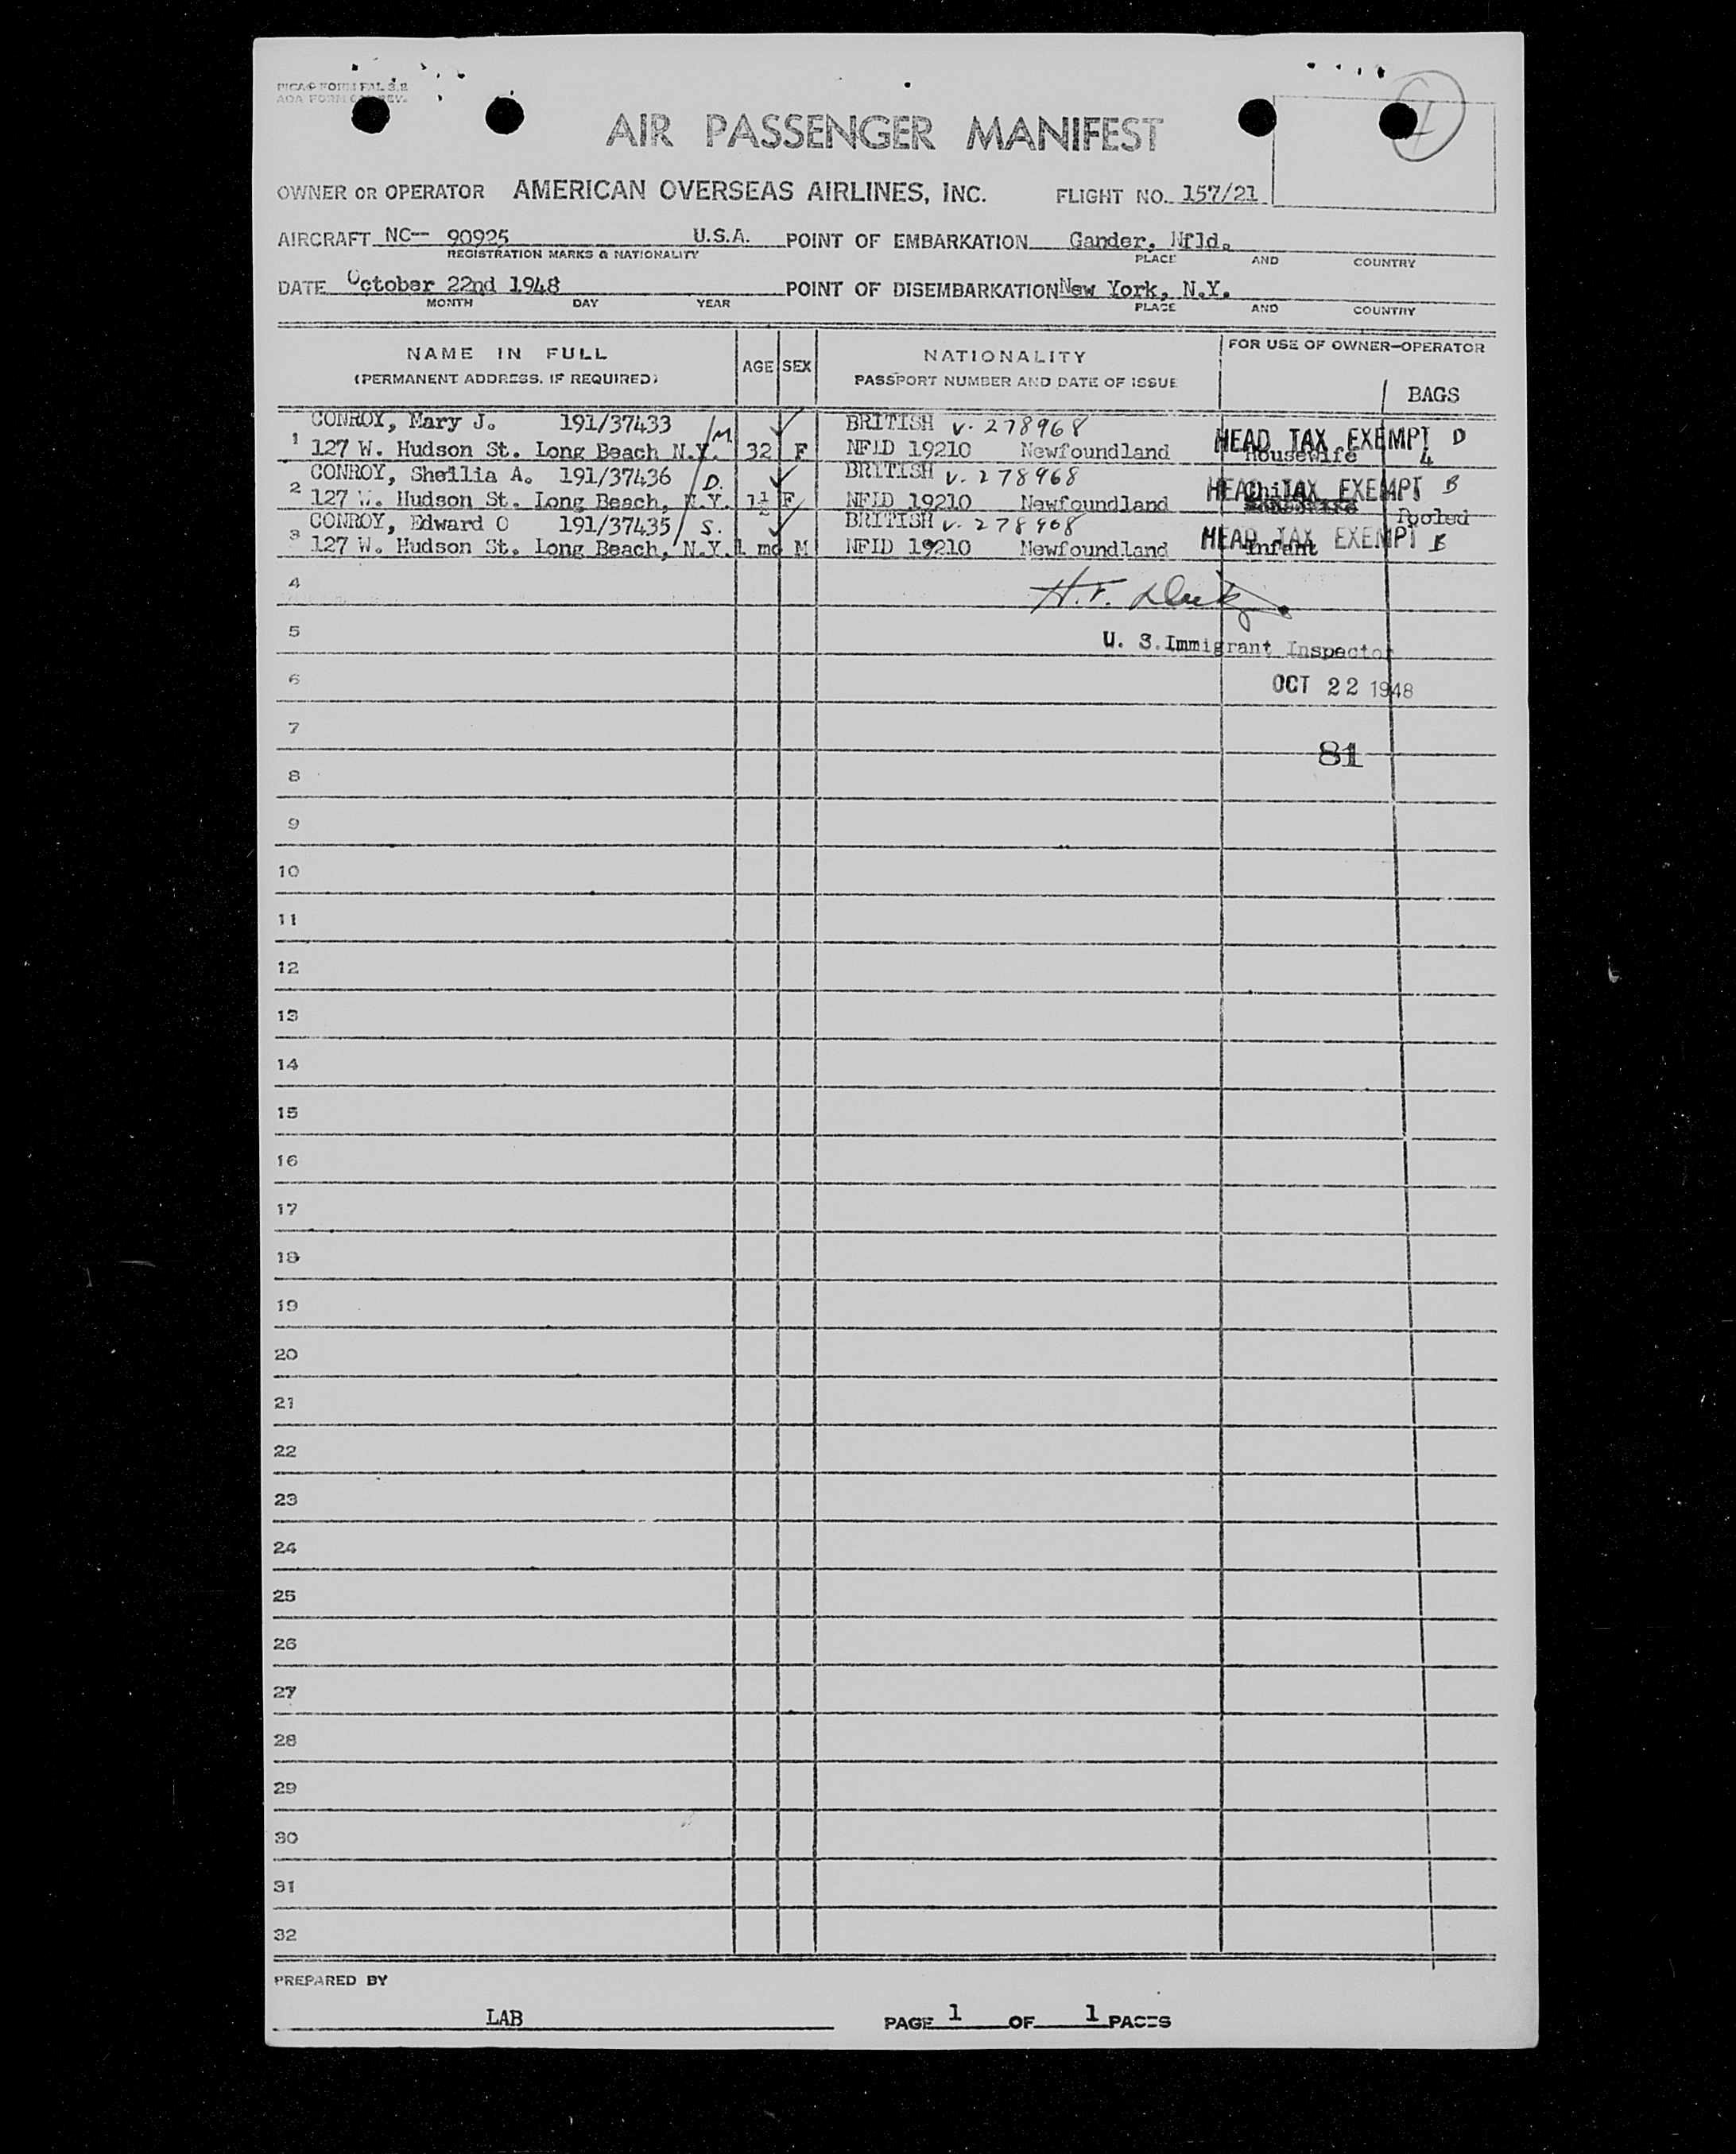 PICAO FORM FAL 3.2
AOA FORM REV.
I
AIR PASSENGER MANIFEST
OWNER OR OPERATOR AMERICAN OVERSEAS AIRLINES, INC. FLIGHT NO. 157/21
AIRCRAFT NC-- 90925 U.S.A. POINT OF EMBARKATION Gander, Nfld.
REGISTRATION MARKS & NATIONALITY PLACE AND COUNTRY
DATE October 22nd 1948 POINT OF DISEMBARKATION New York, N.Y.
MONTH DAY YEAR PLACE AND COUNTRY
NAME IN FULL AGE SEX NATIONALITY FOR USE OF OWNER-OPERATOR
(PERMANENT ADDRESS, IF REQUIRED) PASSPORT NUMBER AND DATE OF ISSUE BAGS
CONROY, Mary J. 191/37433 M. BRITISH V. 278968 HEAD TAX EXEMPT D
1 127 W. Hudson St. Long Beach N.Y. 32 F NFLD 19210 Newfoundland Housewife 4
CONROY, Sheilia A. 191/37436 D. BRITISH V. 278968 HEAD TAX EXEMPT B
2 127 W. Hudson St. Long Beach, N.Y. 1½ F NFLD 19210 Newfoundland Child
CONROY, Edward O 191/37435 S. BRITISH V. 278968 Pooled
3 127 W. Hudson St. Long Beach, N.Y. 1 mo M NFLD 19210 Newfoundland HEAD TAX EXEMPT B Infant
4
H.F.
5 U. S. Immigrant Inspector
6 OCT 22 1948
7
81
8
9
10
11
12
13
14
15
16
17
18
19
20
21
22
23
24
25
26
27
28
29
30
31
32
PREPARED BY
LAB PAGE 1 OF 1 PAGES